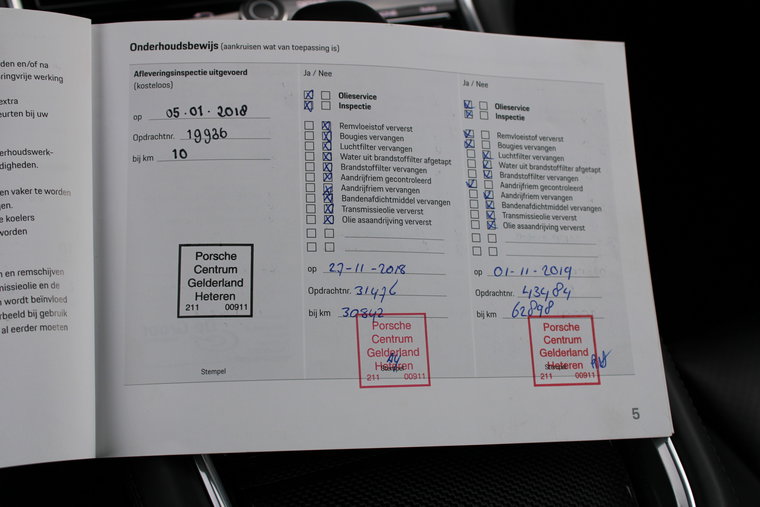 den en/of na
ringvrije werking
extra
eurten bij uw
erhoudswerk-
digheden.
en vaker te worden
gen.
e koelers
worden
n en remschijven
missieolie en de
n wordt beïnvloed
rbeeld bij gebruik
al eerder moeten
Onderhoudsbewijs (aankruisen wat van toepassing is)
Afleveringsinspectie uitgevoerd
(kosteloos)
op 05-01-2018
Opdrachtnr. 19936
bij km 10
Porsche
Centrum
Gelderland
Heteren
211 00911
Stempel
Ja / Nee
Olieservice
Inspectie
Remvloeistof ververst
Bougies vervangen
Luchtfilter vervangen
Water uit brandstoffilter afgetapt
Brandstoffilter vervangen
Aandrijfriem gecontroleerd
Aandrijfriem vervangen
Bandenafdichtmiddel vervangen
Transmissieolie ververst
Olie asaandrijving ververst
op 27-11-2018
Opdrachtnr. 31476
bij km 30842
Porsche
Centrum
Gelderland
Heteren
211 00911
Ja / Nee
Olieservice
Inspectie
Remvloeistof ververst
Bougies vervangen
Luchtfilter vervangen
Water uit brandstoffilter afgetapt
Brandstoffilter vervangen
Aandrijfriem gecontroleerd
Aandrijfriem vervangen
Bandenafdichtmiddel vervangen
Transmissieolie ververst
Olie asaandrijving ververst
op 01-11-2019
Opdrachtnr. 43484
bij km 62898
Porsche
Centrum
Gelderland
Heteren
Stempel
211 00911
5